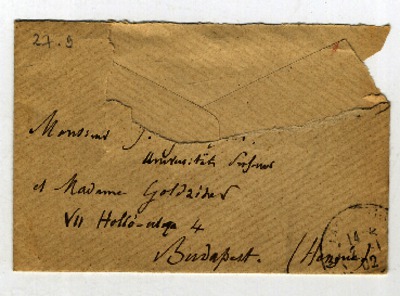 27.9
Monsieur J.
Universitäts
et Madame Goldziher
VII Holló-utca 4
Budapest. (Hongrie)